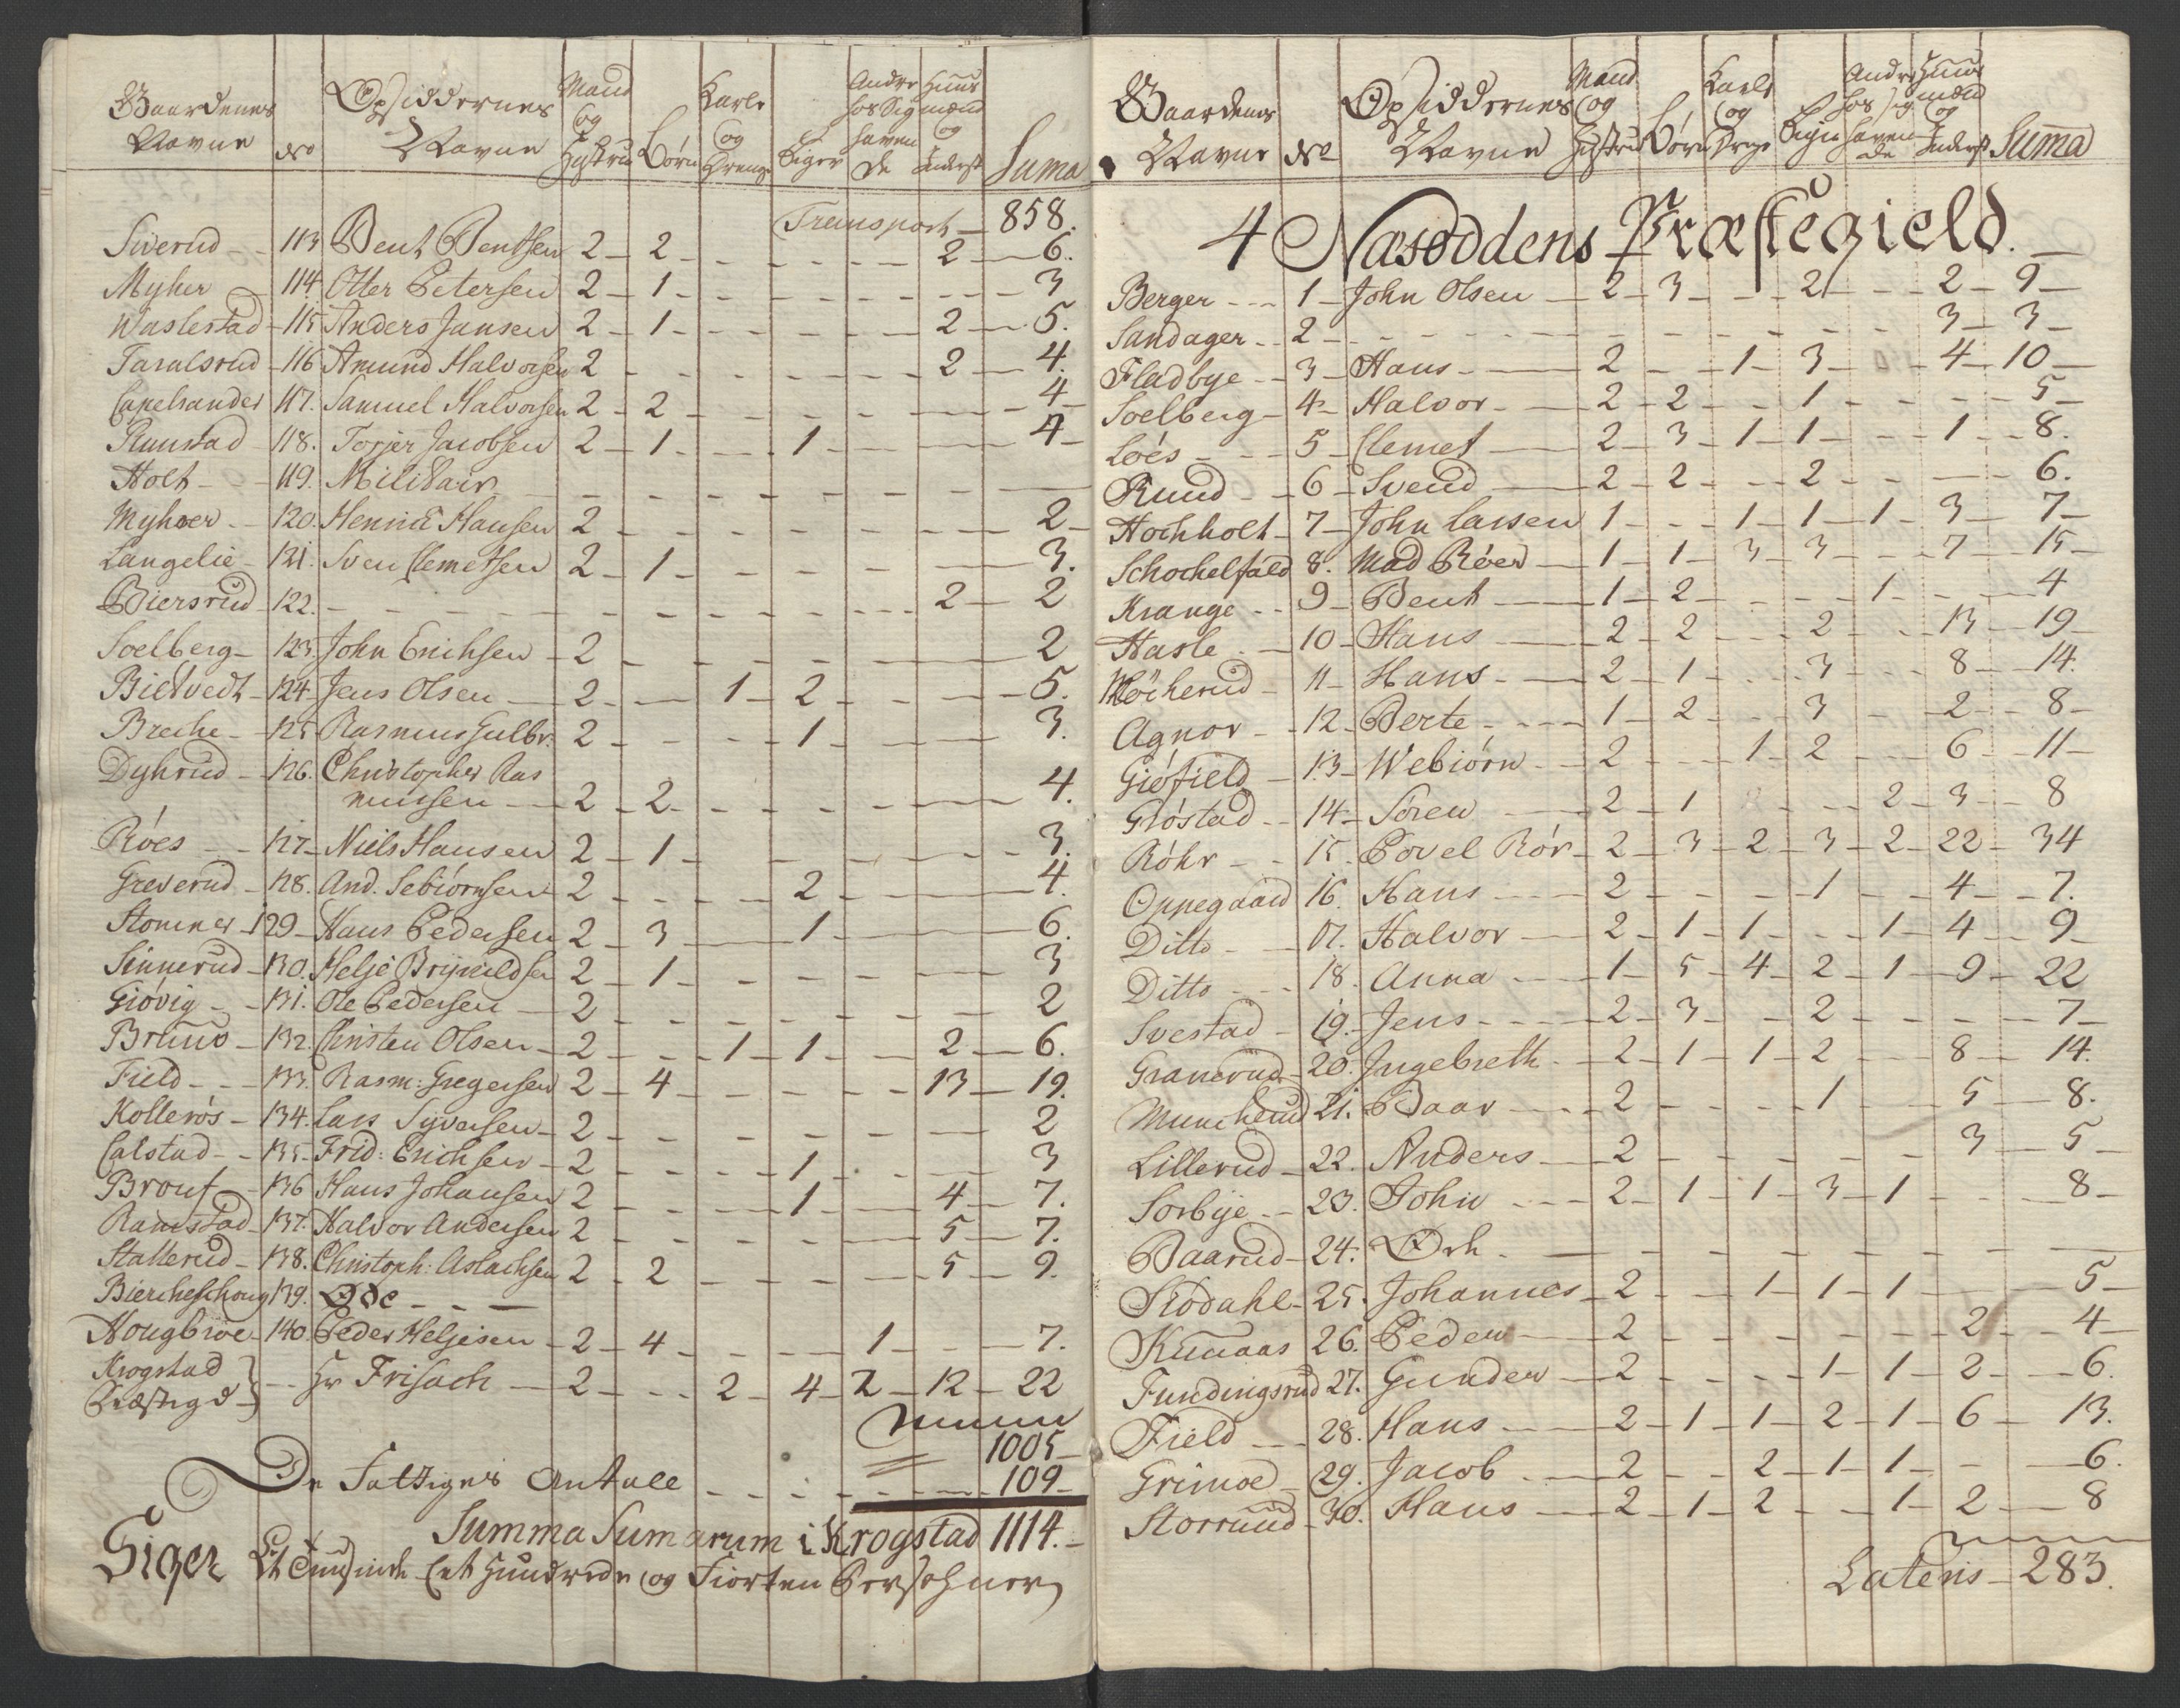 Gaardenes Navne No Opsiddernes Navne Mand og Hustru Børn Karle og Drenge Piger Andre hos Sig havende Huus mænd og Inderst Suma
Transport — 858.
Siverud — 113 Bent Bentsen 2 — 2 — 2 — 6.
Myhrer — 114 Otter Petersen 2 — 1 — 3
Waslestad — 115 Anders Jansen 2 — 1 — 2 — 5.
Taralsrud — 116 Amund Halvorsen 2 — 2 — 4.
Capelsander 117. Samuel Halvorsen 2 — 2 — 4 —
Runstad — 118. Torjer Jacobsen 2 — 1 — 1 — 4 —
Holt — 119. Militair —
Myhrer — 120. Henrich Hansen 2 — 2 —
Langelie — 121. Sven Clemetsen 2 — 1 — 3.
Biersrud — 122. — 2 — 2
Soelberg — 123. John Erichsen — 2 — 2
Bietvedt — 124. Jens Olsen — 2 — 1 — 2 — 5.
Breche — 125 Rasmus Gulbr. 2 — 1 — 3.
Dyhrud — 126. Christopher Ras
mussen — 2 — 2 — 4.
Róes — 127 — Niels Hansen 2 — 1 — 3.
Greverud — 128. And. Sebiórnsen 2 — 2 — 4.
Stomner — 129 — Hans Pedersen 2 — 3 — 1 — 6.
Sinnerud — 130. Helje Brynildsen 2 — 1 — 3
Gióvig — 131. Ole Pedersen — 2 — 2
Bruus — 132. Christen Olsen — 2 — 1 — 1 — 2 — 6.
Field — 133. Rasm: Gregersen 2 — 4 — 13 — 19.
Kollerós — 134. Lars Syversen — 2 — 2
Calstad — 135 — Frid: Erichsen — 2 — 1 — 3
Brout — 136 Hans Johansen 2 — 1 — 4 — 7.
Ramstad — 137. Halvor Andersen 2 — 5 — 7.
Stallerud — 138. Christoph: Aslachsen 2 — 2 — 5 — 9.
Biercheschoug 139. Øde —
Hougbroe — 140. Peder Heljesen — 2 — 4 — 1 — 7.
Krogstad
Præstegd } — Hr Frisach — 2 — 2 — 4 — 2 — 12 — 22
Summa 1005 —
De Fattiges Antall — 109 —
Summa Sumarum i Krogstad 1114. —
Siger Et Tuusinde Eet Hundrede og Fiorten Persohner
Gaardenes Navne No Opsiddernes Navne Mand og Hustru Børn Karle og Drenge Piger Andre hos Sig havende Huus mænd og Inderst Suma
4 Næsoddens Præstegield.
Berger — 1 — John Olsen — 2 — 3 — 2 — 2 — 9 —
Sandager — 2 — 3 — 3 —
Fladbye — 3 — Hans — 2 — 1 — 3 — 4 — 10 —
Soelberg — 4 — Halvor — 2 — 2 — 1 — 5 —
Lóes — 5 — Clemet — 2 — 3 — 1 — 1 — 1 — 8.
Ruud — 6 — Svend — 2 — 2 — 2 — 6.
Hochholt — 7 — John Larsen 1 — 1 — 1 — 1 — 3 — 7 —
Schochelfald 8. Mad Róer — 1 — 1 — 3 — 3 — 7 — 15 —
Krange — 9 — Bent — 1 — 2 — 1 — 4
Hasle — 10 — Hans — 2 — 2 — 2 — 13 — 19 —
Mócherud — 11 — Hans — 2 — 1 — 3 — 8 — 14.
Agnor — 12 — Berte — 1 — 2 — 3 — 2 — 8 —
Giófield — 13 — Webiórn — 2 — 1 — 2 — 6 — 11 —
Gróstad — 14 — Sóren — 2 — 1 — 2 — 3 — 8
Róhr — 15. Povel Rór — 2 — 3 — 2 — 3 — 2 — 22 — 34
Oppegaard 16. Hans — 2 — 1 — 4 — 7.
Ditto — 17. Halvor — 2 — 1 — 1 — 1 — 4 — 9 —
Ditto — 18. Anna — 1 — 5 — 4 — 2 — 1 — 9 — 22
Svestad — 19. Jens — 2 — 3 — 2 — 7 —
Granerud — 20. Jngebreth — 2 — 1 — 1 — 2 — 8 — 14.
Muncherud 21. Baar — 2 — 1 — 5 — 8.
Lillerud — 22. Anders — 2 — 3 — 5 —
Sorbye — 23. John — 2 — 1 — 1 — 3 — 1 — 8 —
Baarud — 24. —
Skodahl — 25. Johannes — 2 — 1 — 1 — 1 — 5 —
Kunaas 26. Peder — 2 — 2 — 4 —
Fundingsrud 27. Gunder — 2 — 1 — 1 — 2 — 6.
Field — 28. Hans — 2 — 1 — 1 — 2 — 1 — 6 — 13.
Grimoe — 29. Jacob — 2 — 2 — 1 — 1 — 6.
Storruud — 30. Hans — 2 — 1 — 2 — 1 — 2 — 8
Lateris — 283.